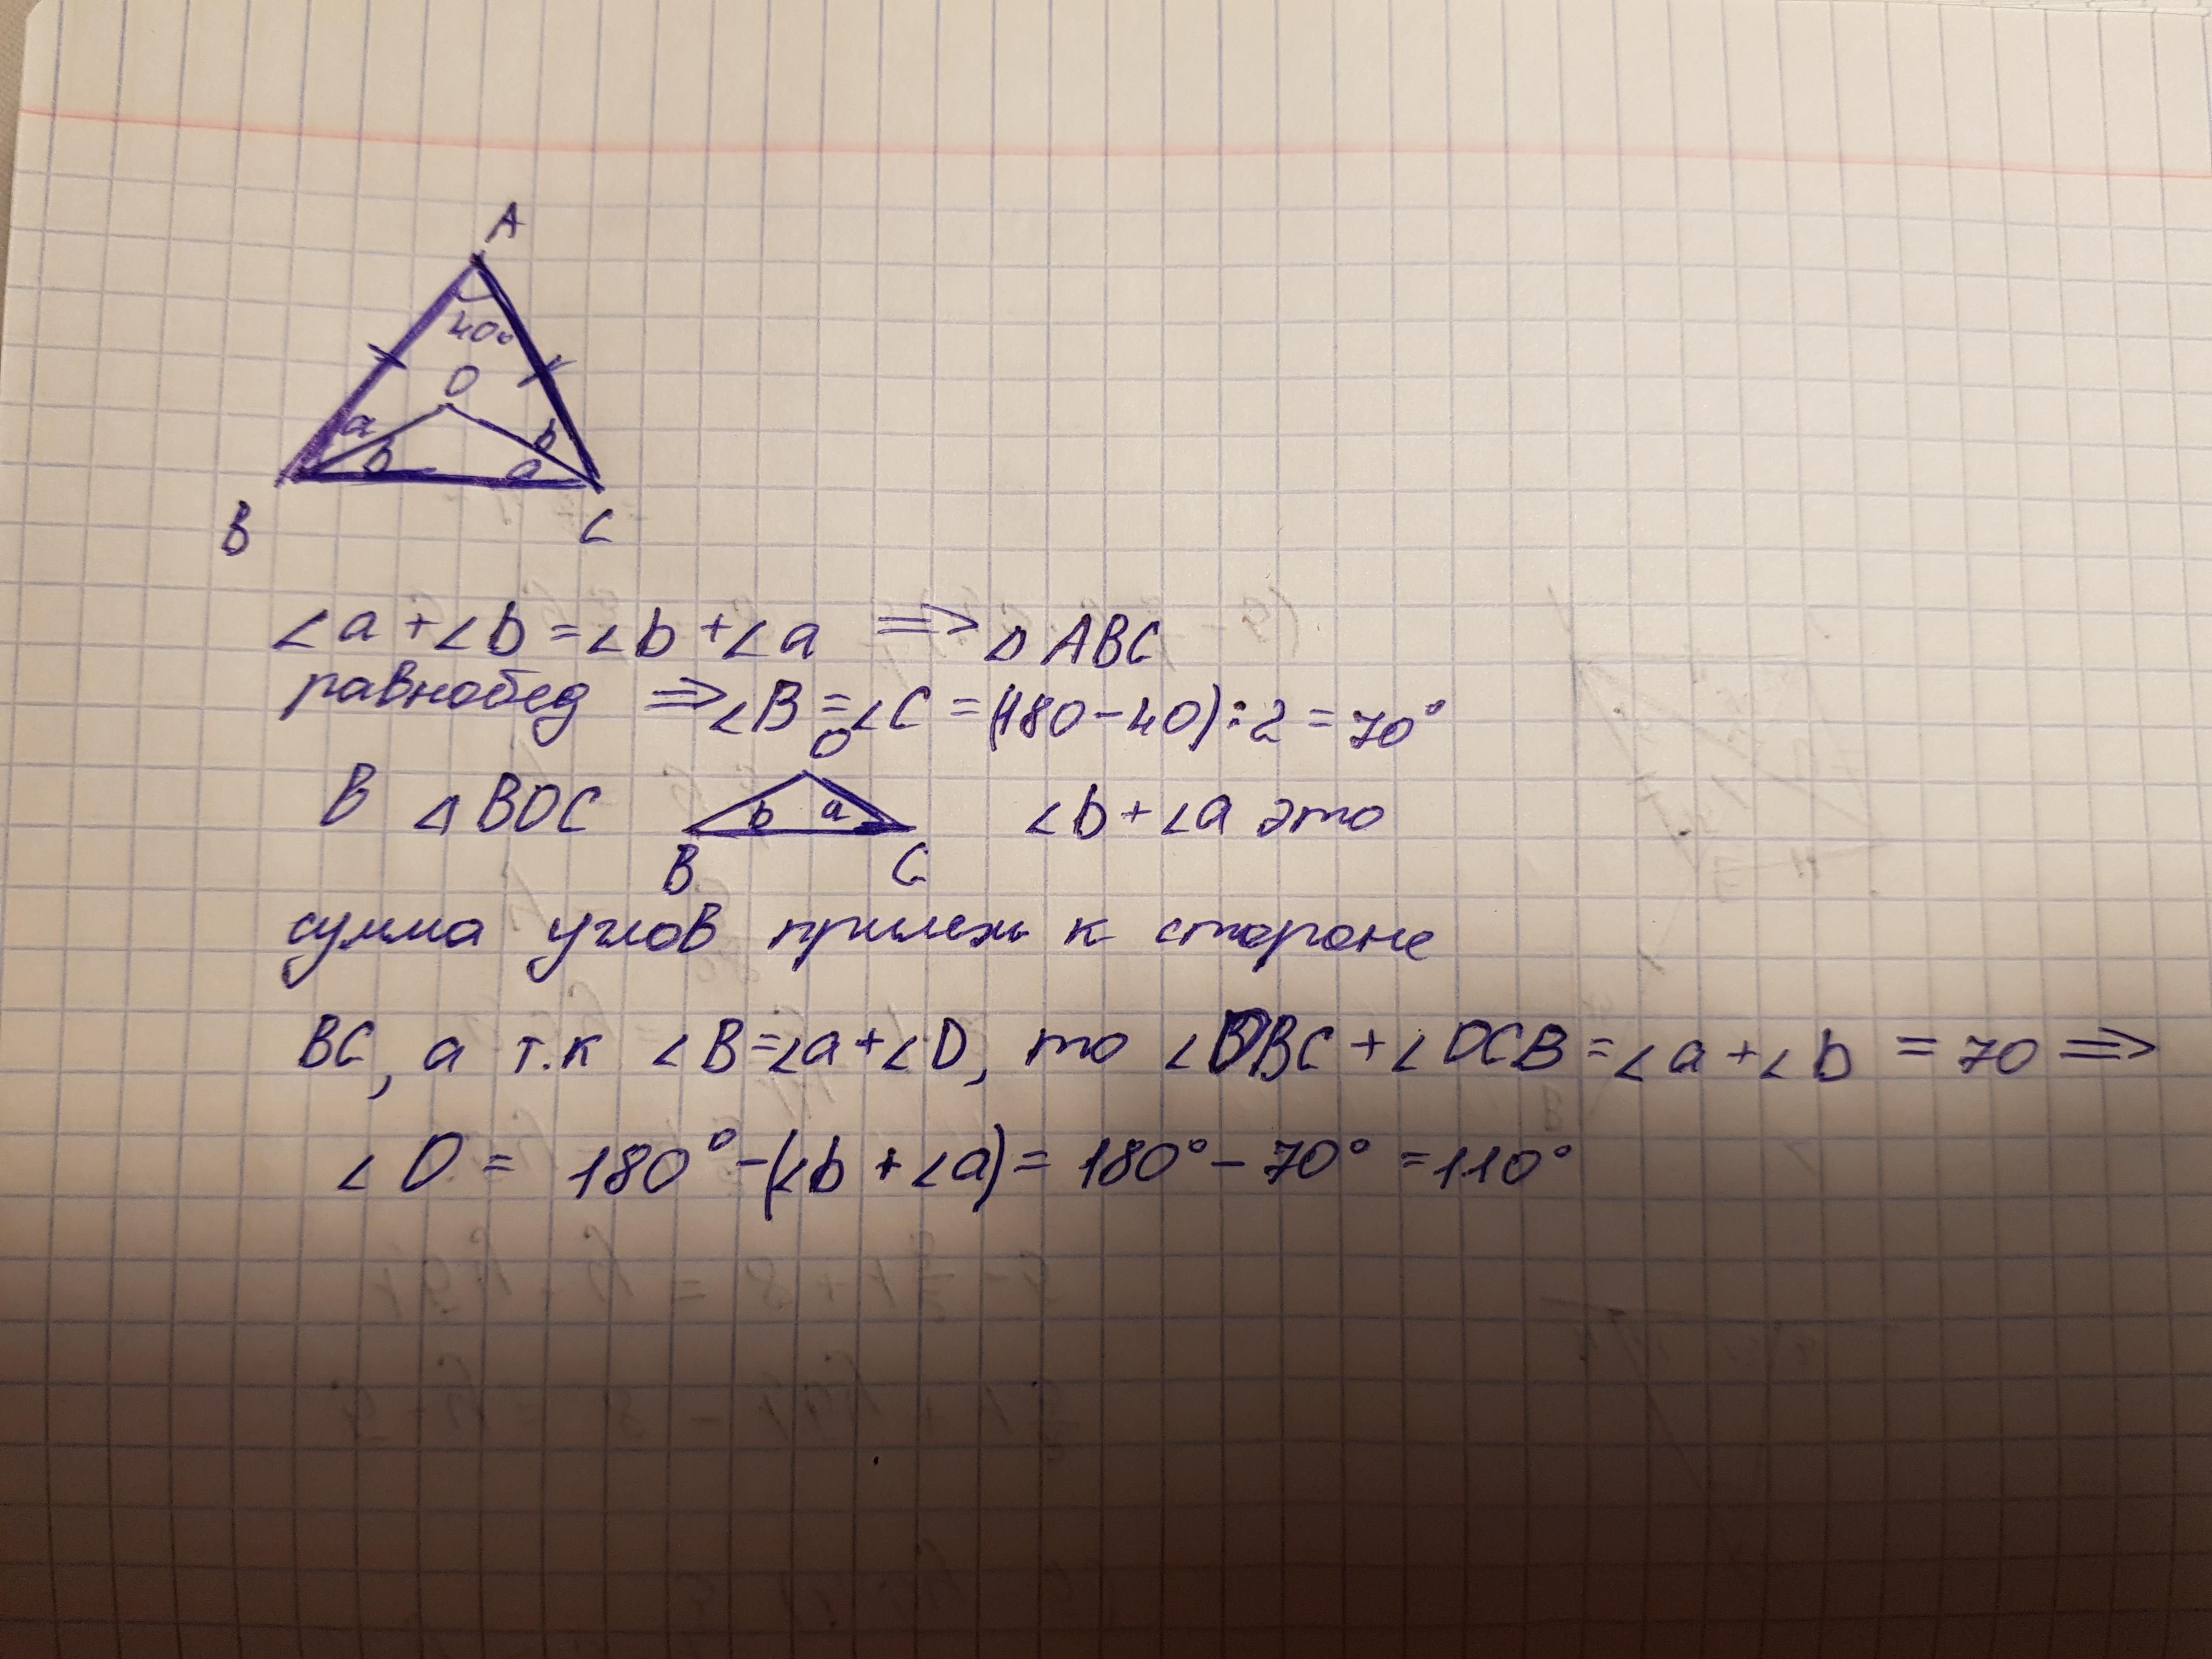 A
40°
O
a
b
b
a
B
C
∠a + ∠b = ∠b + ∠a ⇒ △ ABC
равнобед ⇒ ∠B = ∠C = (180 - 40) : 2 = 70°
В △ BOC
O
b
a
B
C
∠b + ∠a это
сумма углов прилеж к стороне
BC, а т.к ∠B = ∠a + ∠D, то ∠OBC + ∠OCB = ∠a + ∠b = 70 ⇒
∠O = 180° - (∠b + ∠a) = 180° - 70° = 110°